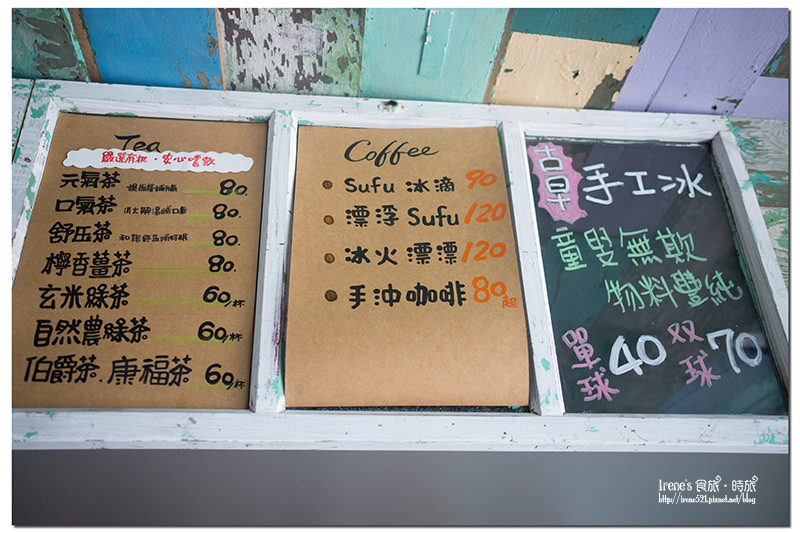 Tea
嚴選有机·安心嚐飲
元氣茶 80.
口氣茶 80.
舒压茶 80.
檸香薑茶 80.
玄米綠茶 60/杯
自然農綠茶 60/杯
伯爵茶.康福茶 60/杯
Coffee
Sufu 冰滴 90
漂浮 Sufu 120
冰火漂漂 120
手沖咖啡 80起
古早手工冰
童叟無欺
物料豐純
單球 40 双球 70
Irene's 食旅·時旅
http://irene521.pixnet.net/blog